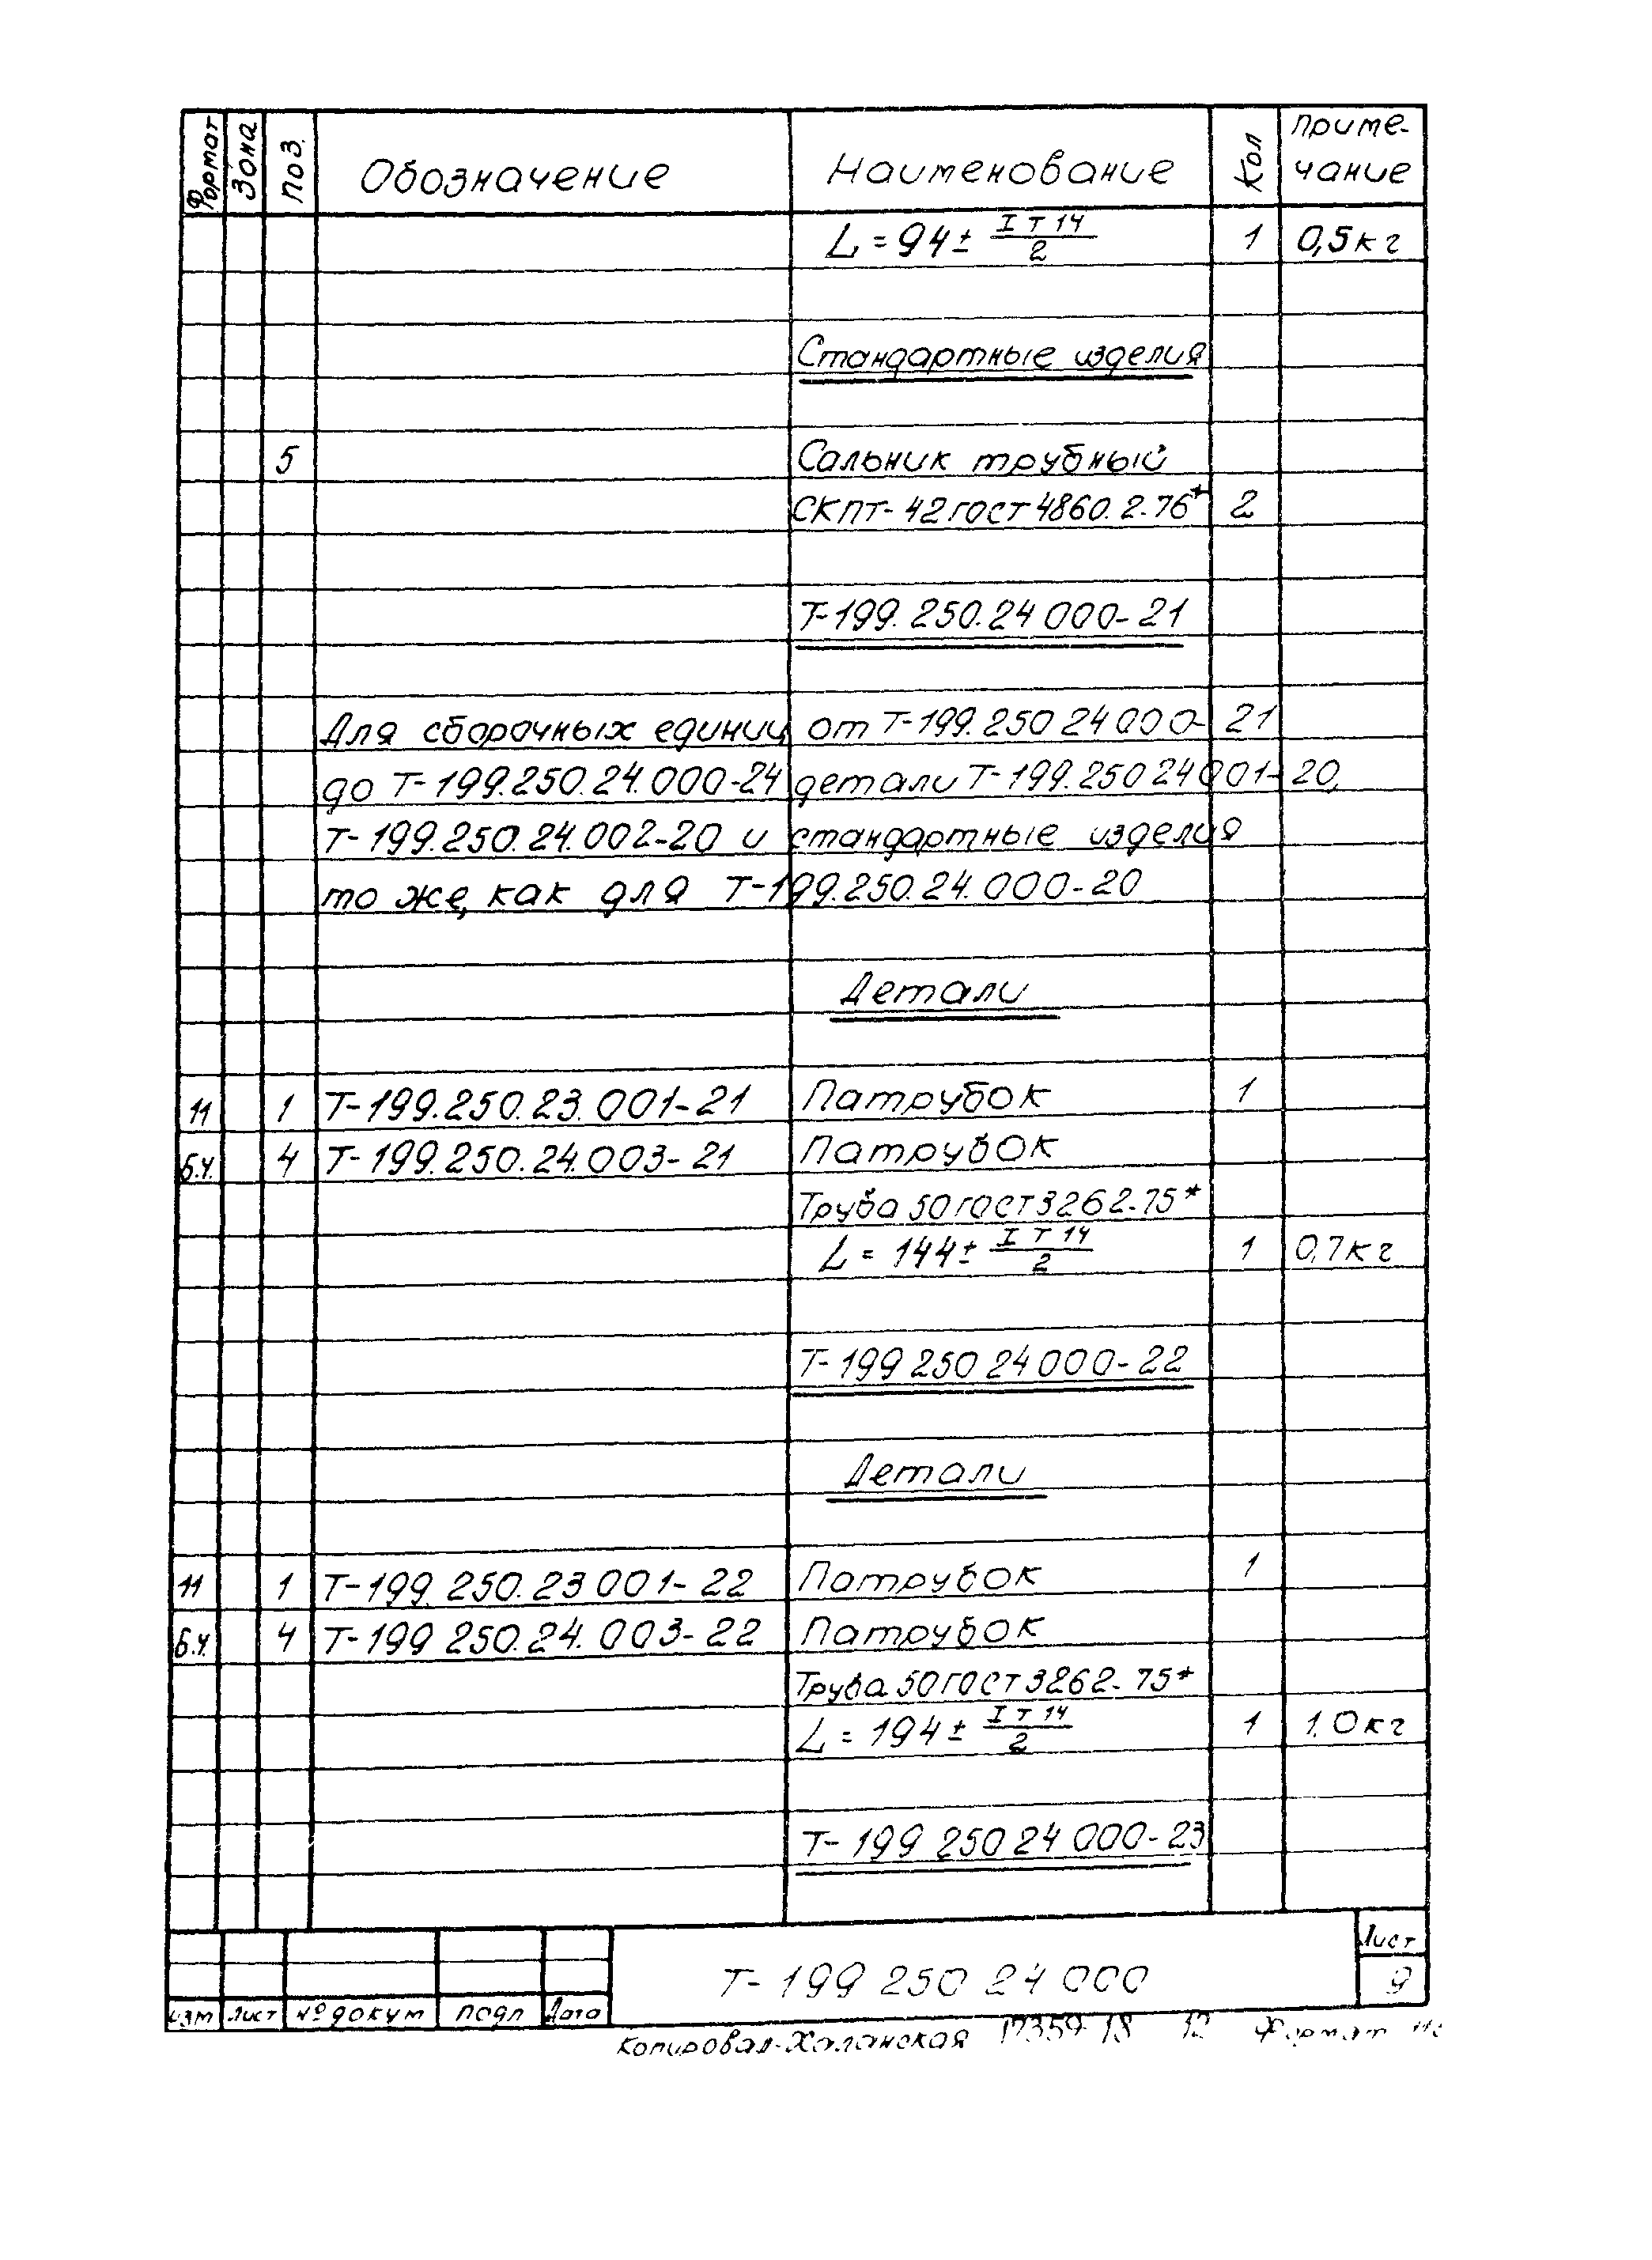 Формат Зона Поз. Обозначение Наименование Кол Приме-
чание
L = 94 ± IT14/2 1 0,5кг
Стандартные изделия
5 Сальник трубный
СКПТ-42 ГОСТ 4860.2-76* 2
Т-199.250.24 000-21
Для сборочных единиц от Т-199.250 24 000-21
до Т-199.250.24.000-24 детали Т-199.250 24 001-20,
Т-199.250.24.002-20 и стандартные изделия
то же, как для Т-199.250.24.000-20
Детали
11 1 Т-199.250.23.001-21 Патрубок 1
Б.Ч. 4 Т-199.250.24.003-21 Патрубок
Труба 50 ГОСТ 3262-75*
L = 144 ± IT14/2 1 0,7кг
Т-199 250 24 000-22
Детали
11 1 Т-199.250.23 001-22 Патрубок 1
Б.Ч 4 Т-199 250.24.003-22 Патрубок
Труба 50 ГОСТ 3262-75*
L = 194 ± IT14/2 1 1.0кг
Т-199 250 24 000-23
Лист
Т-199 250 24 000 9
Изм Лист № докум Подп Дата
Копировал-Халанская 17359-18 12 Формат